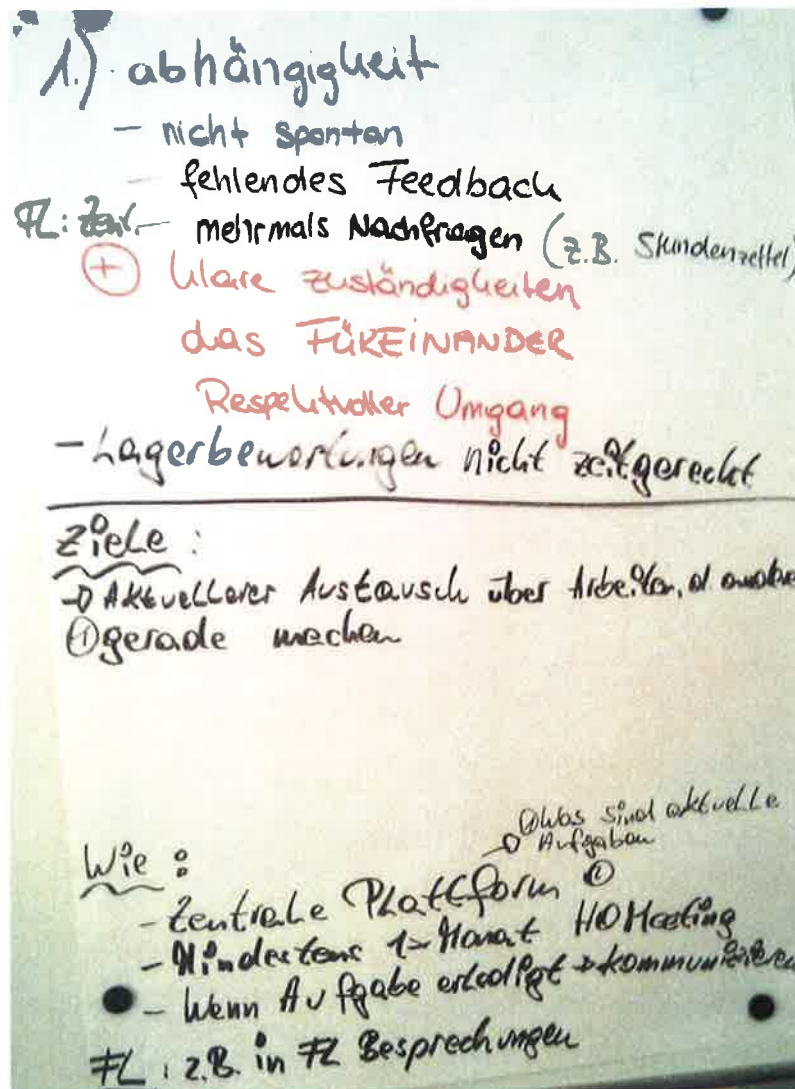 1.) abhängigkeit
- nicht spontan
- fehlendes Feedback
FL: - mehrmals Nachfragen (z.B. Stundenzettel)
+ klare zuständigkeiten
das FÜREINANDER
Respektvoller Umgang
- Lagerbewertungen nicht zeitgerecht
Ziele:
→ Aktuellerer Austausch über Arbeiten, d. andere
① gerade machen
① Was sind aktuelle
Aufgaben
Wie:
- Zentrale Plattform ①
- Mindestens 1x Monat HO Meeting
- Wenn Aufgabe erledigt → kommunizieren
FL: z.B. in FL Besprechungen